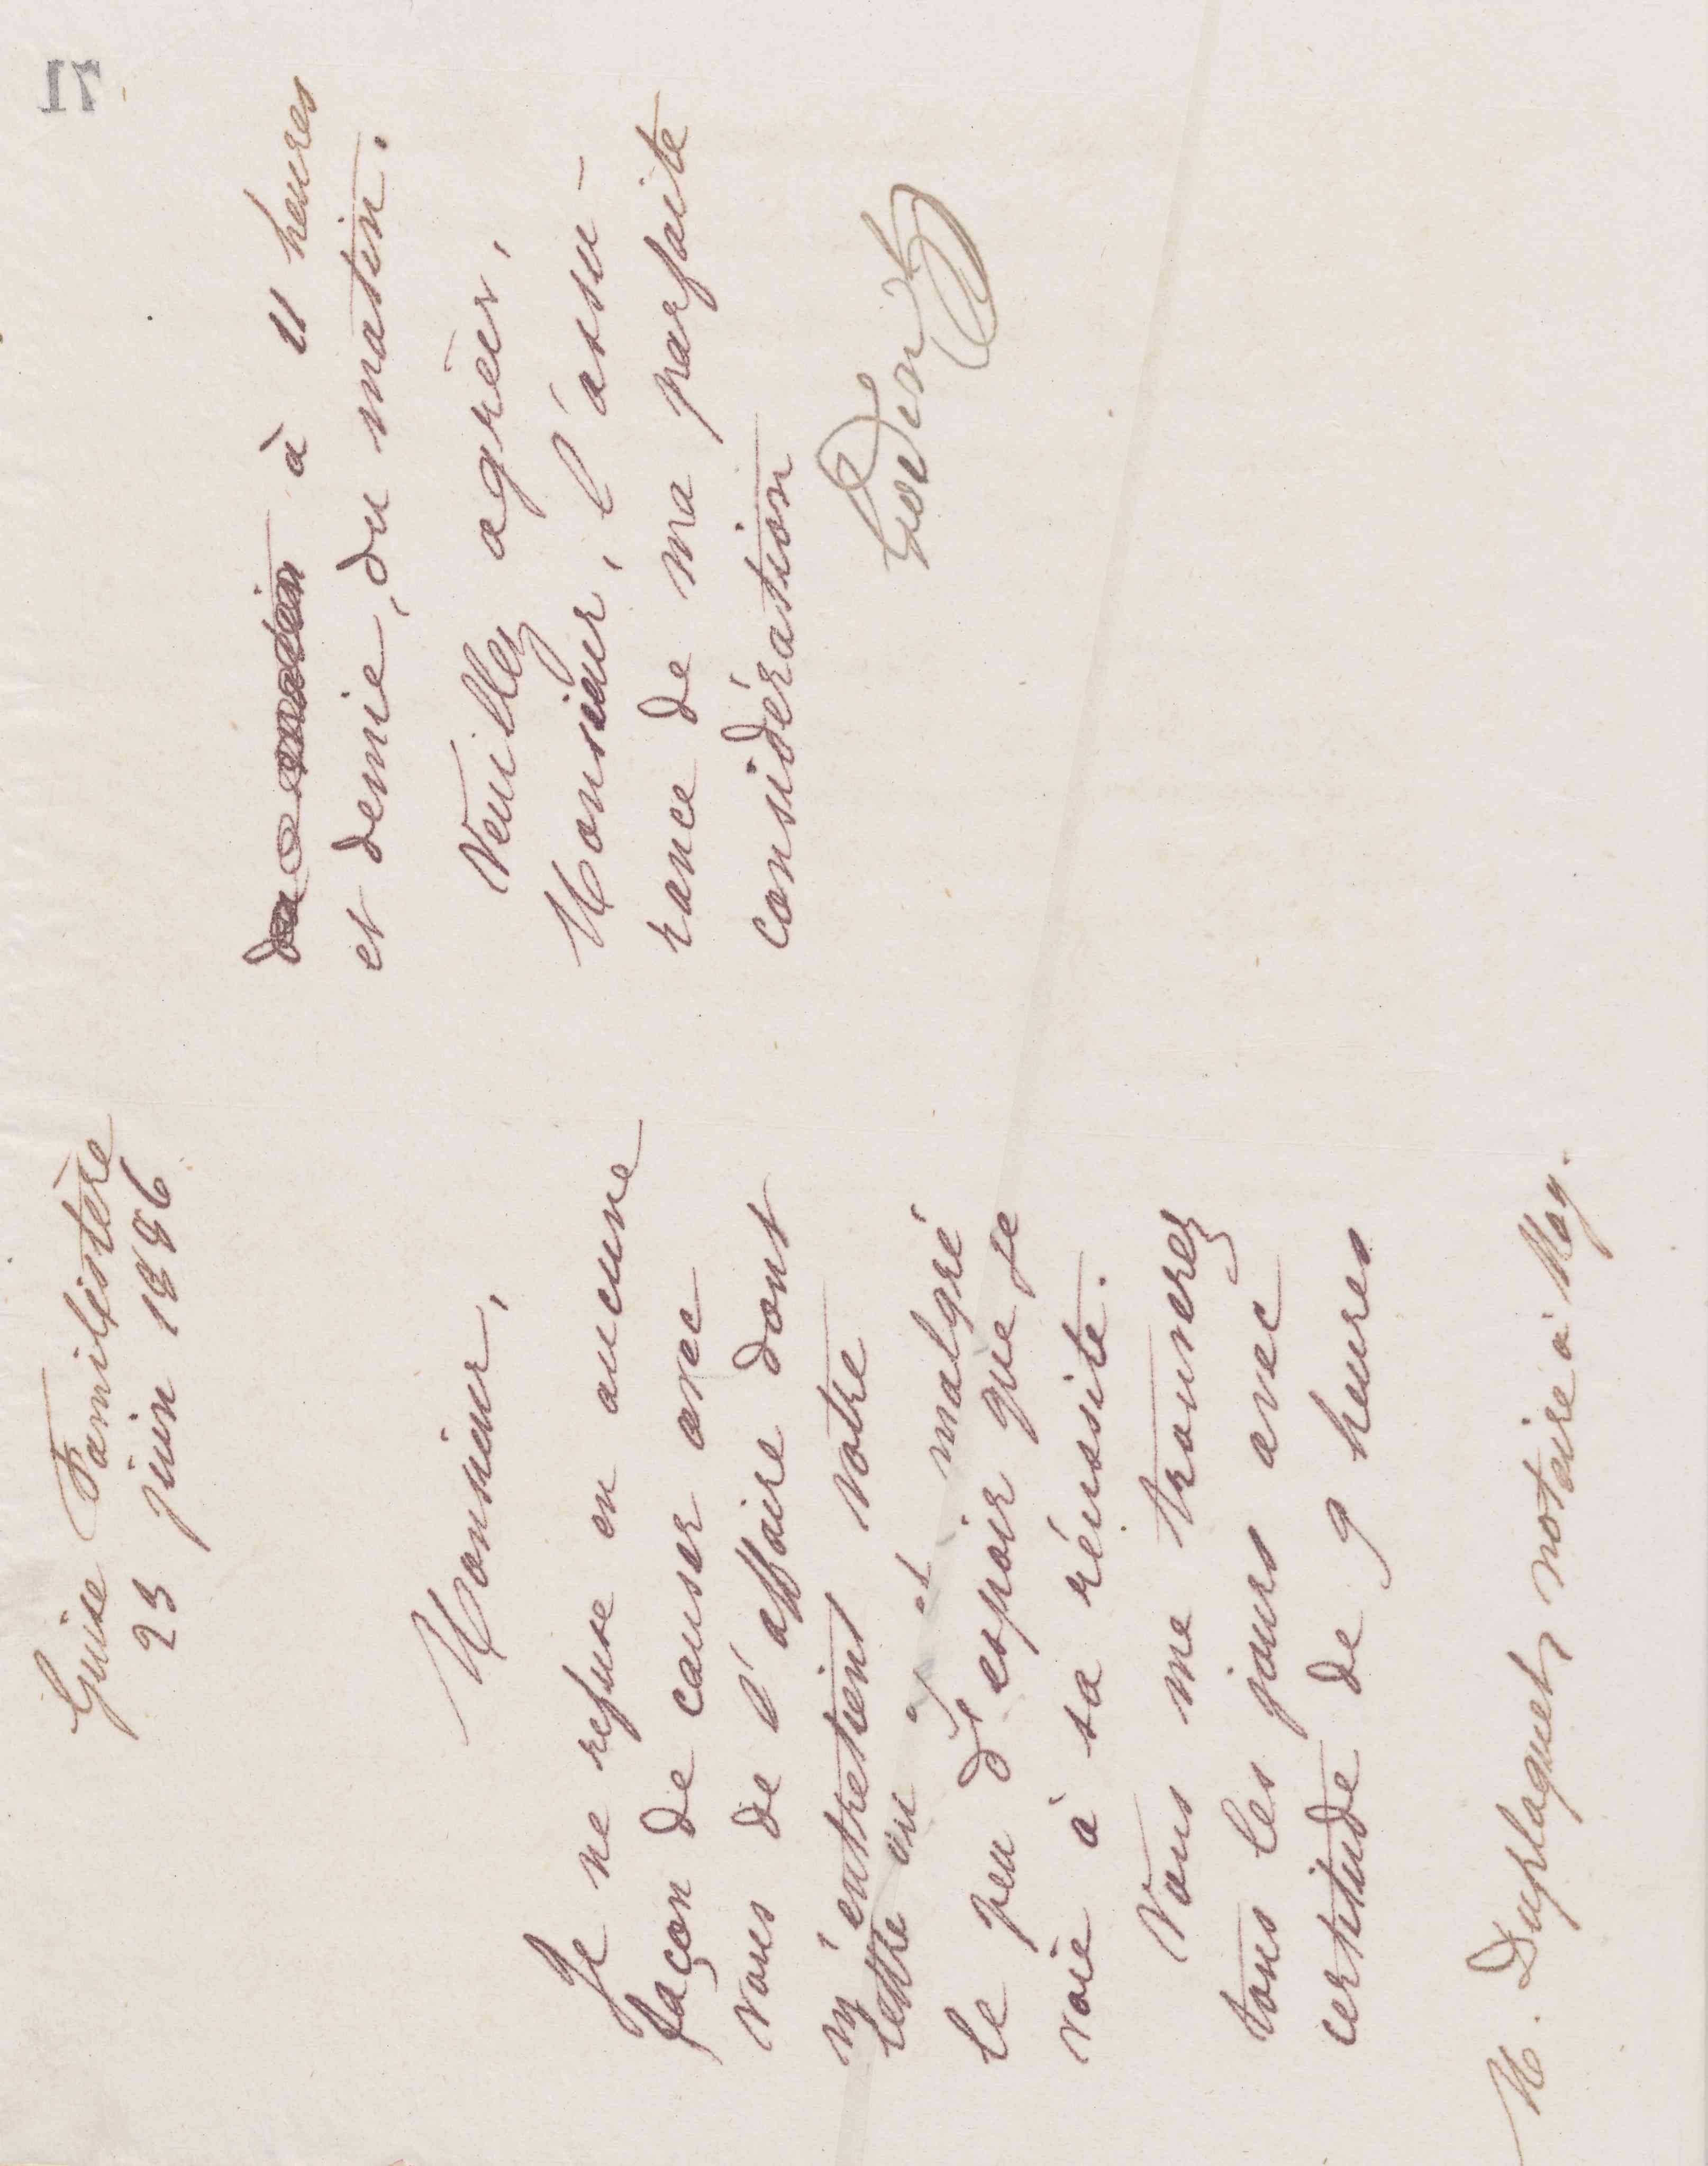 Guise Familistère
23 juin 1886
Monsieur,
Je ne refuse en aucune
façon de causer avec
vous de l'affaire dont
m'entretient votre
lettre du 21 et malgré
le peu d'espoir que je
voie à sa réussite.
Vous me trouverez
tous les jours avec
certitude de 9 heures
M. Duplaquet, notaire à Moy.
71
à 11 heures
et demie, du matin.
Veuillez agréer,
Monsieur, l'assu-
rance de ma parfaite
considération
Godin